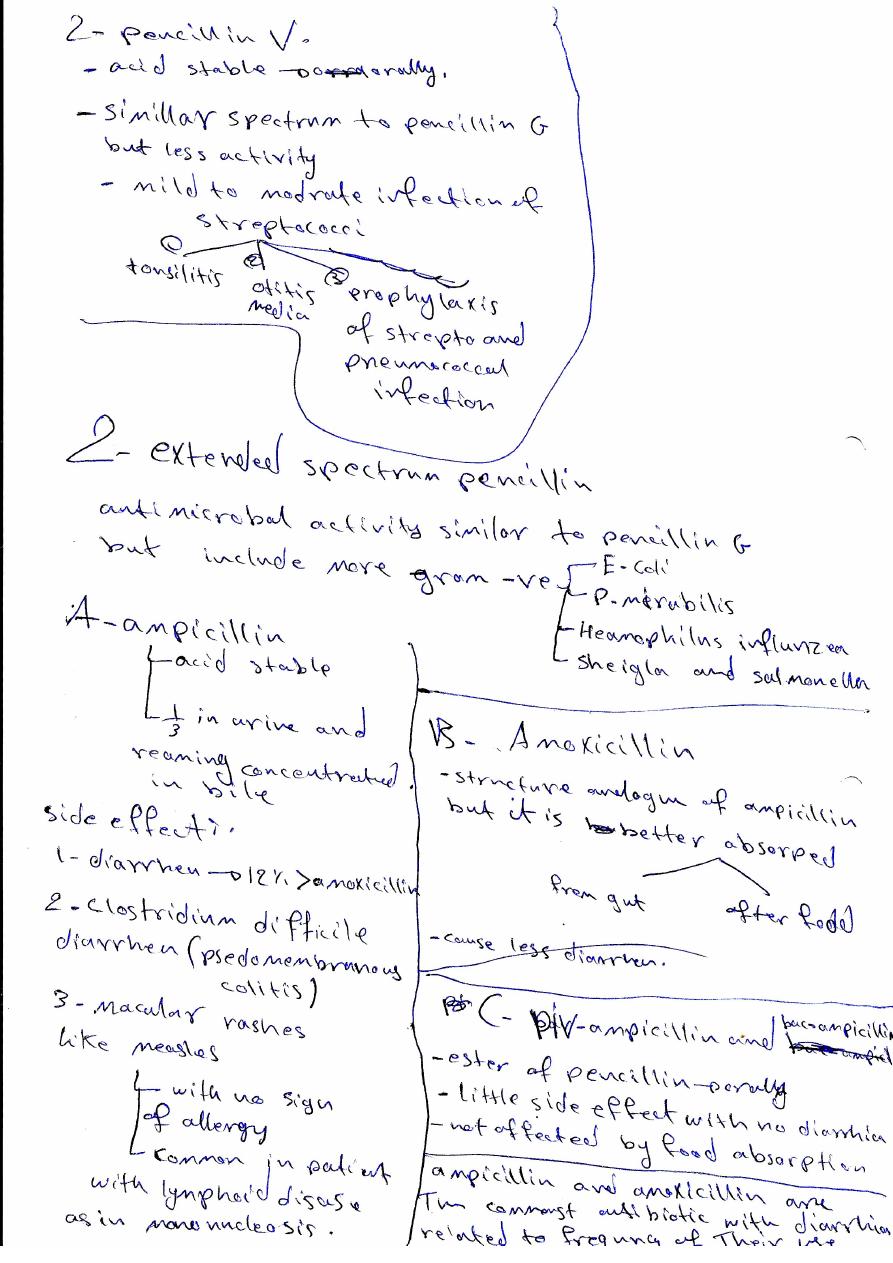 2- pencillin V.
- acid stable → orally.
- simillar spectrum to pencillin G
but less activity
- mild to modrate infection of
streptococci
① tonsilitis
② otitis
media
③ prophylaxis
of strepto and
pneumococcal
infection
2- extended spectrum pencillin
antimicrobal activity similar to pencillin G
but include more gram -ve
E-coli
P-mirabilis
Heamophilus influnzea
sheigla and salmonella
A-ampicillin
acid stable
1/3 in urine and
reaming concentrated
in bile
side effect:
1- diarrhea → 12% > amoxicillin
2- Clostridium difficile
diarrhea (psedomembranous
colitis)
3- Macular rashes
like measles
with no sign
of allergy
common in patient
with lymphoid disase
as in mononucleosis.
B- Amoxicillin
- structure analogue of ampicillin
but it is better absorped
from gut
after food
- cause less diarrhea.
C- piv-ampicillin and bac-ampicillin
- ester of pencillin → orally
- little side effect with no diarrhia
- not affected by food absorption
ampicillin and amoxicillin are
The commost antibiotic with diarrhia
related to frequncy of Their use